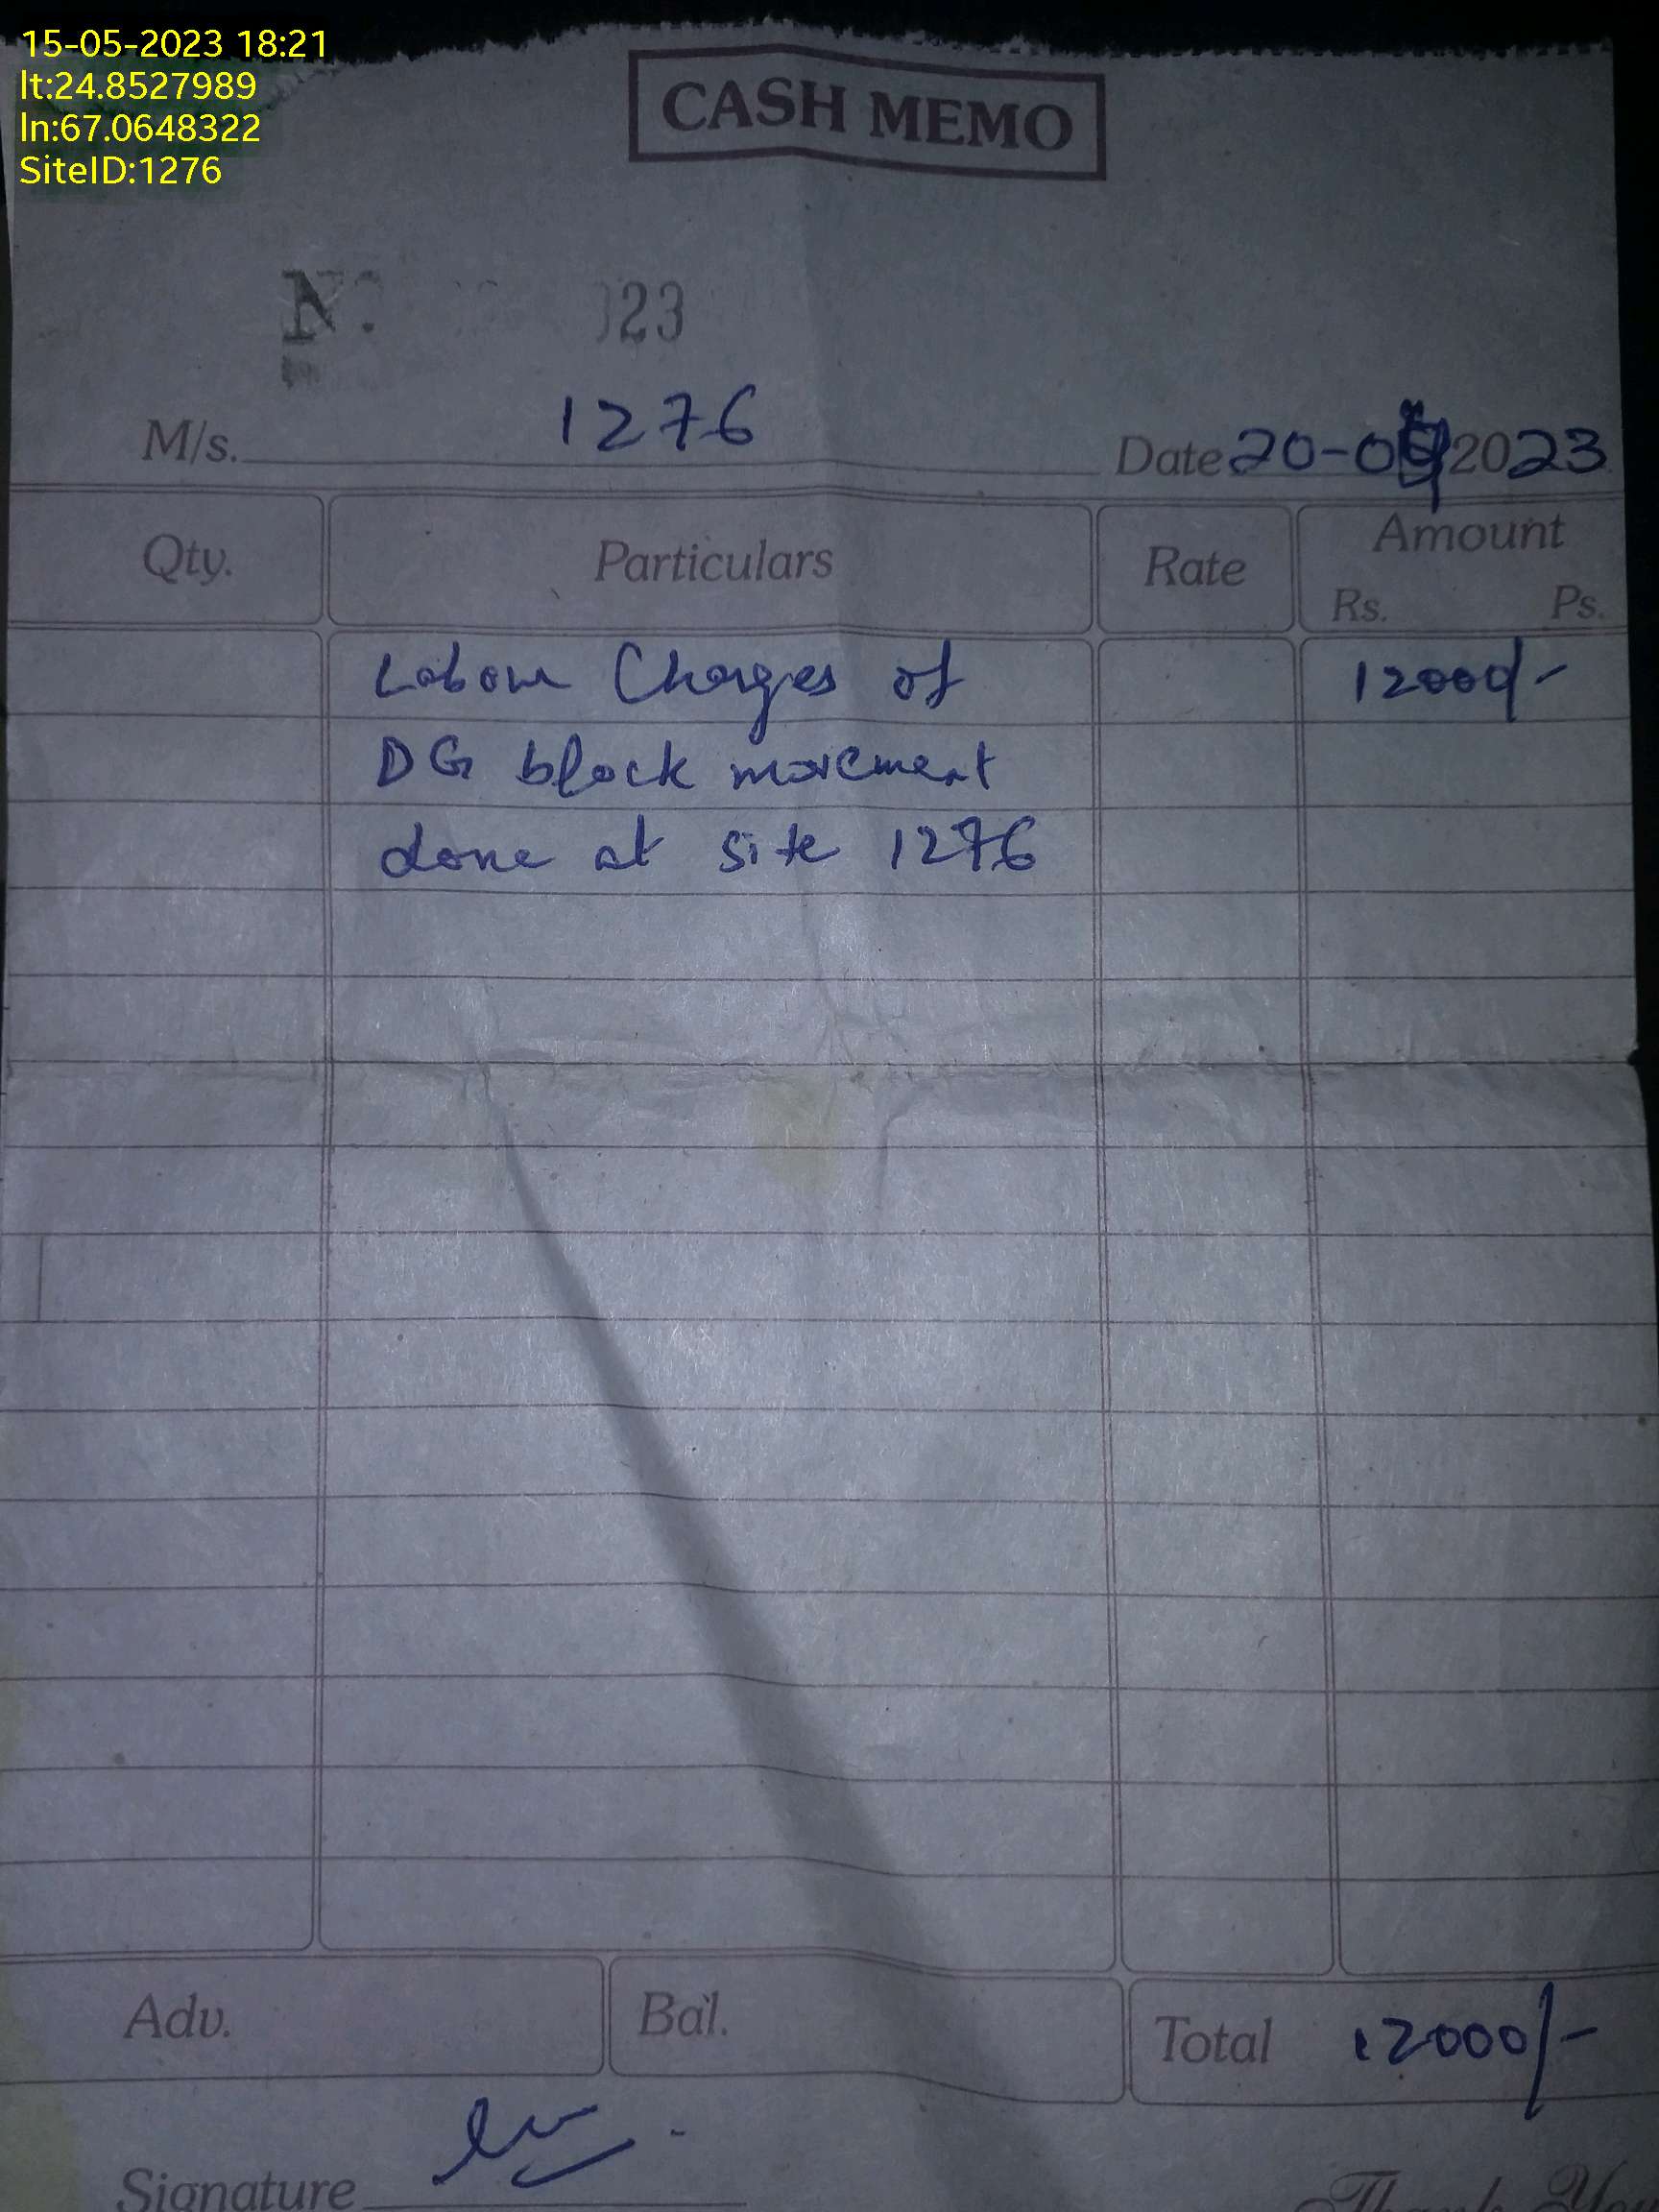 15-05-2023 18:21
lt:24.8527989
ln:67.0648322
SiteID:1276
CASH MEMO
No. 023
M/s. 1276 Date 20-0 2023
Qty. Particulars Rate Amount
Rs. Ps.
Labour Charges of 12000/-
DG block movement
done at site 1276
Adv. Bal. Total 12000/-
Signature Thank You